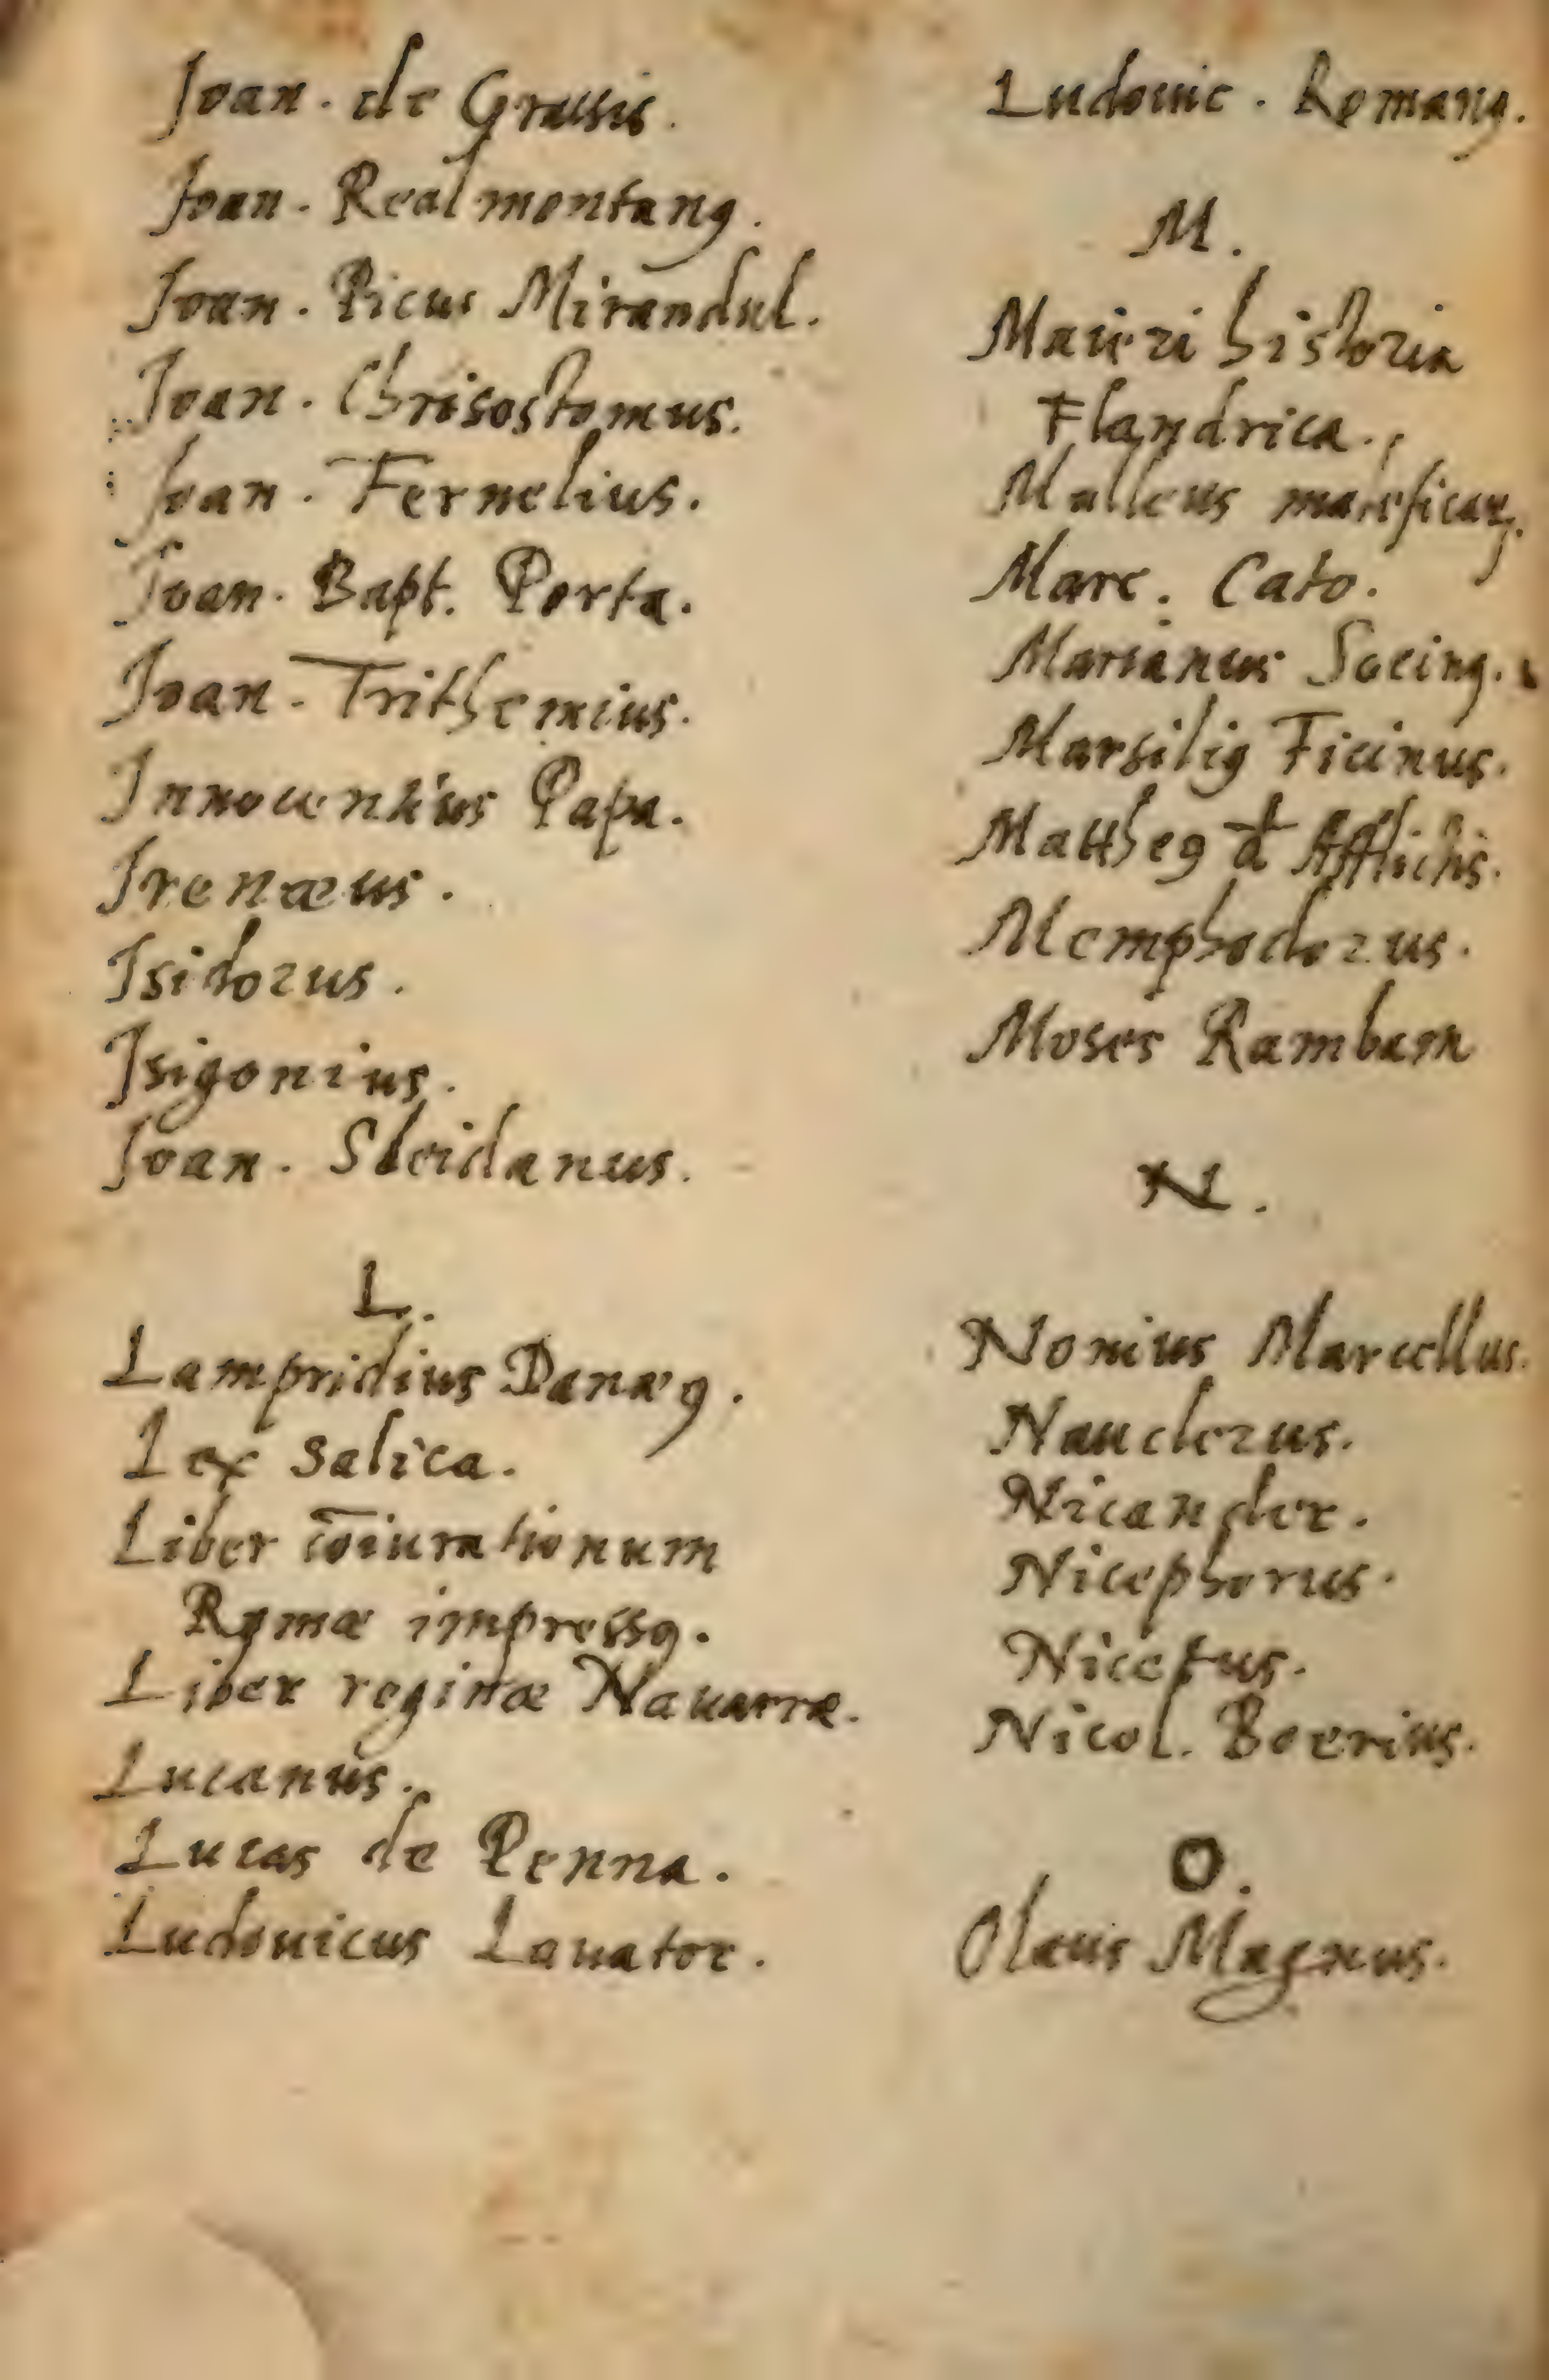 Joan. de Grassis.
Joan. Realmontanꝰ.
Joan. Picus Mirandul.
Joan. Chrisostomus.
Joan. Fernelius.
Joan. Bapt. Porta.
Joan. Trithemius.
Innocentius Papa.
Irenæus.
Isidorus.
Isigonius.
Joan. Sleidanus.
L.
Lampridius Danæꝰ.
Lex Salica.
Liber cōiurationum
Romæ impressꝰ.
Liber reginæ Nauarræ.
Lucanus.
Lucas de Penna.
Ludouicus Lauator.
Ludouic. Romanꝰ.
M.
Maieri historia
Flandrica.
Malleus maleficaꝝ.
Marc. Cato.
Marianus Socinꝰ.
Marsiliꝰ Ficinus.
Mattheꝰ d Afflictis.
Memphodorus.
Moses Rambam
N.
Nonius Marcellus.
Nauclerus.
Nicander.
Nicephorus.
Nicetus.
Nicol. Boerius.
O.
Olaus Magnus.